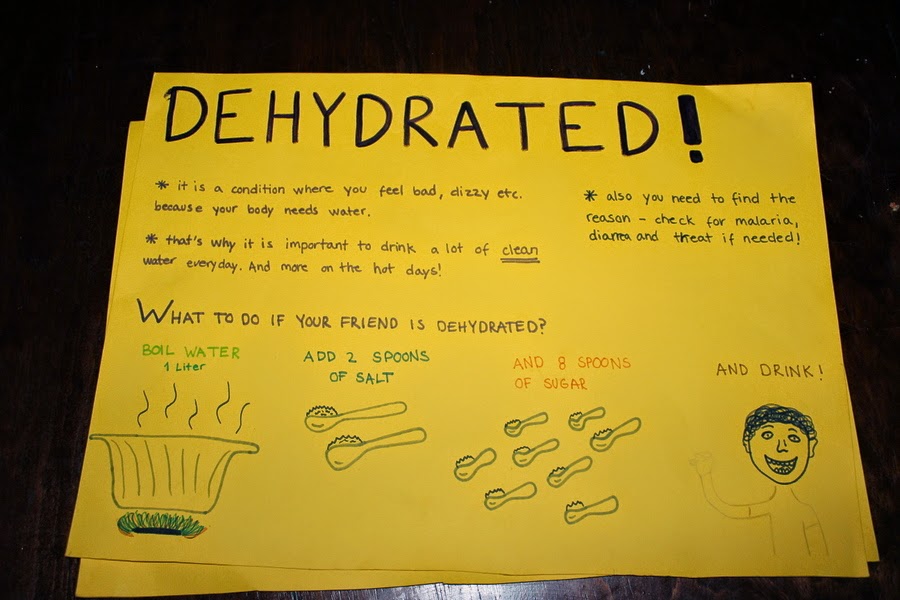 DEHYDRATED!
* it is a condition where you feel bad, dizzy etc.
because your body needs water.
* that's why it is important to drink a lot of clean
water everyday. And more on the hot days!
* also you need to find the
reason - check for malaria,
diarrea and threat if needed!
WHAT TO DO IF YOUR FRIEND IS DEHYDRATED?
BOIL WATER
1 Liter
ADD 2 SPOONS
OF SALT
AND 8 SPOONS
OF SUGAR
AND DRINK!